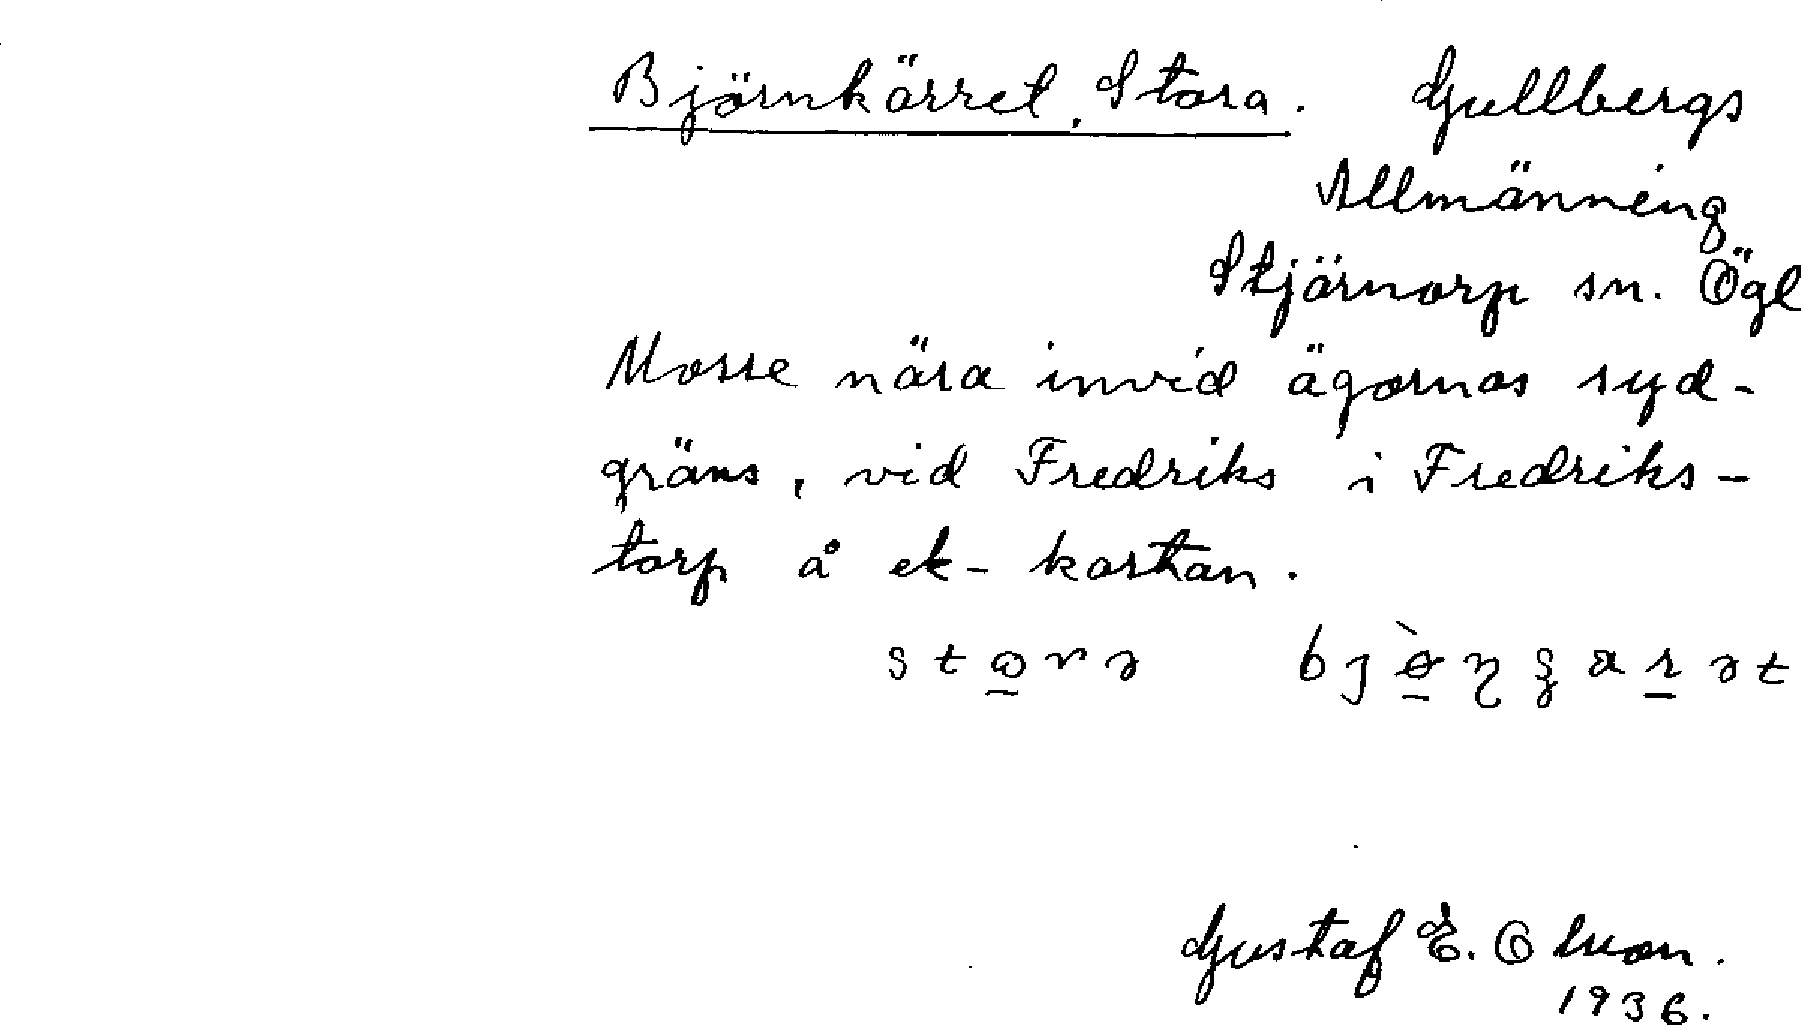 Björnkärret, Stora. Gullbergs
Allmänning
Stjärnorp sn. Ögl
Mosse nära invid ägornas syd-
gräns, vid Fredriks i Fredriks-
torp å ek-kartan.
Gustaf E. Olsson.
1936.